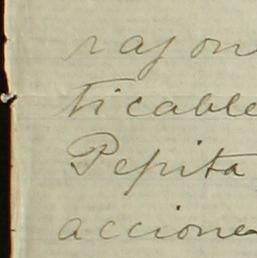 razon
ticable
Pepita
accione